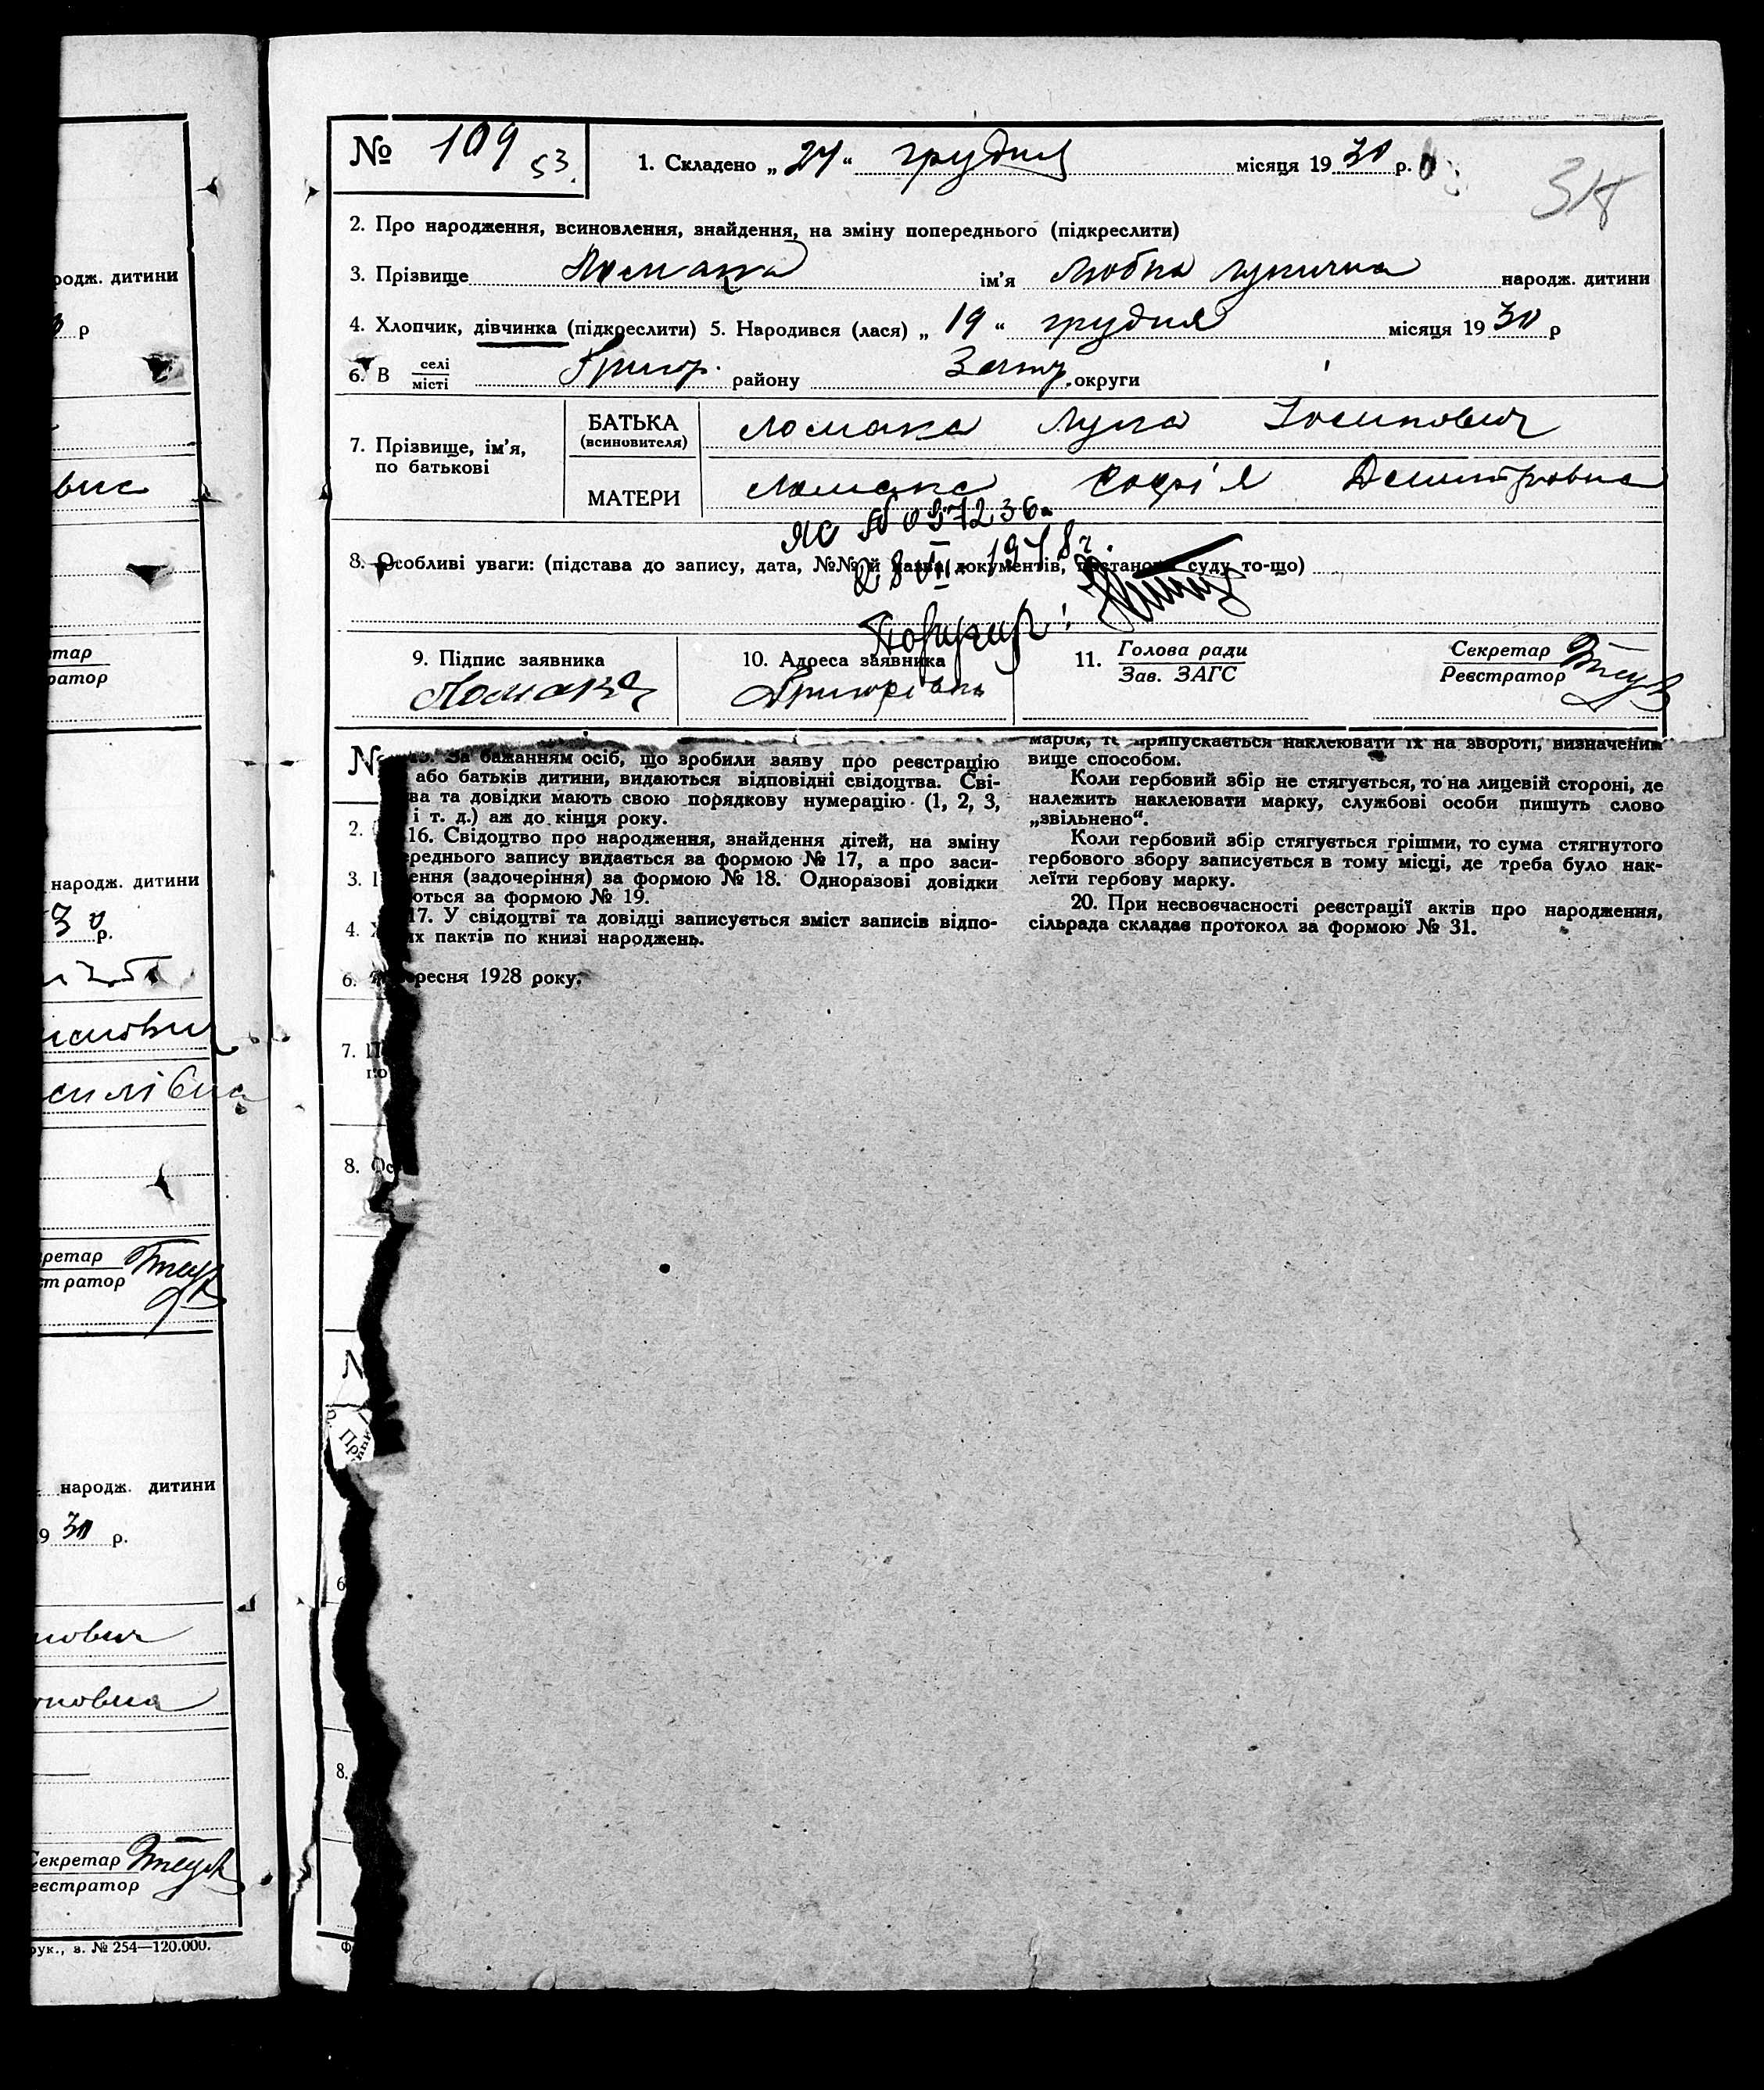 № 109 53.
1. Складено „ “ грудня місяця 1930 р.
2. Про народження, всиновлення, знайдення, на зміну попереднього (підкреслити)
3. Прізвище Ломака ім'я Любка Лукична народж. дитини
4. Хлопчик, дівчинка (підкреслити) 5. Народився (лася) „ 19 “ грудня місяця 1930 р
6. В селі Григор. району округи
місті
7. Прізвище, ім'я, по батькові
БАТЬКА (всиновителя) Ломака Лука Іосипович
МАТЕРИ Ломака Софі'я Демитровна
8. Особливі уваги: (підстава до запису, дата, №№ й назва документів, постанова суду то-що)
9. Підпис заявника
Ломака
10. Адреса заявника
Григорівка
11. Голова ради
Зав. ЗАГС
Секретар
Реєстратор
15. За бажанням осіб, що зробили заяву про реєстрацію
або батьків дитини, видаються відповідні свідоцтва. Сві-
ва та довідки мають свою порядкову нумерацію (1, 2, 3,
і т. д.) аж до кінця року.
16. Свідоцтво про народження, знайдення дітей, на зміну
ереднього запису видається за формою № 17, а проваси-
ення (задочеріння) за формою № 18. Одноразові довідки
ються за формою № 19.
17. У свідоцтві та довідці записується зміст записів відпо-
их пактів по книзі народжень.
ресня 1928 року.
марок, то припускається наклеювати їх на звороті, визначеним
вище способом.
Коли гербовий збір не стягується, то на лицевій стороні, де
належить наклеювати марку, службові особи пишуть слово
„звільнено“.
Коли гербовий збір стягується грішми, то сума стягнутого
гербового збору записується в тому місці, де треба було нак-
леїти гербову марку.
20. При несвоєчасності реєстрації актів про народження,
сільрада складає протокол за формою № 31.
№
2.
3.
4.
6.
7.
8. Ос
6
8.
родж. дитини
р
тар
ратор
народж. дитини
р.
ретар
тратор
народж. дитини
9 30 р.
Секретар
еєстратор
рук., з. № 254—120.000.